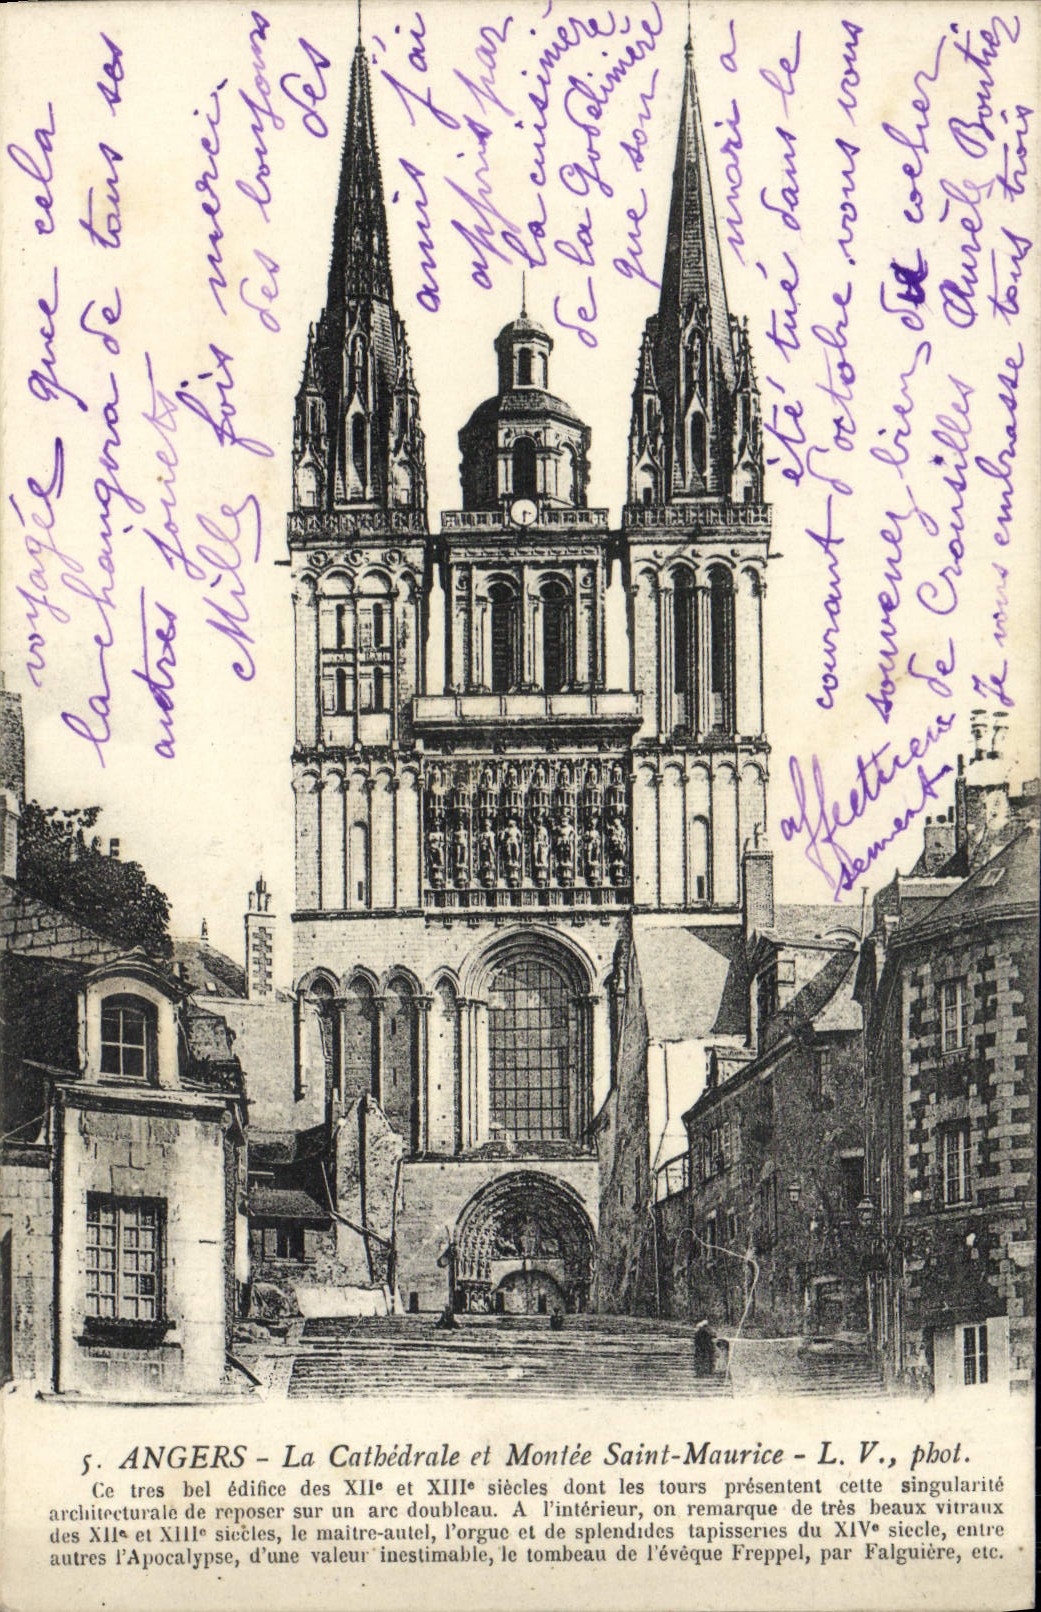 voyagée que cela
la changera de tous ses
autres jouets
Mille fois merci.
des
des
amis j'ai
appris par
la cuisinière
de la Godelinière
que son
mari a
été tué dans le
courant d'octobre. vous vous
souvenez bien du cocher
de Crousilles Aurèle Boutier
Je vous embrasse tous trois
affectueu
sement.
5. ANGERS - La Cathédrale et Montée Saint-Maurice - L. V., phot.
Ce tres bel édifice des XIIe et XIIIe siècles dont les tours présentent cette singularité
architecturale de reposer sur un arc doubleau. A l'intérieur, on remarque de très beaux vitraux
des XIIe et XIIIe siècles, le maitre-autel, l'orgue et de splendides tapisseries du XIVe siecle, entre
autres l'Apocalypse, d'une valeur inestimable, le tombeau de l'évêque Freppel, par Falguière, etc.